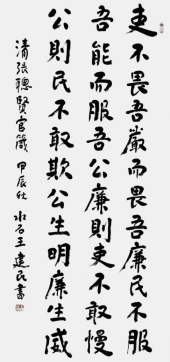 吏不畏吾嚴而畏吾廉民不服
吾能而服吾公廉則吏不敢慢
公則民不敢欺公生明廉生威
清張聰賢官箴 甲辰秋 水石王建民書